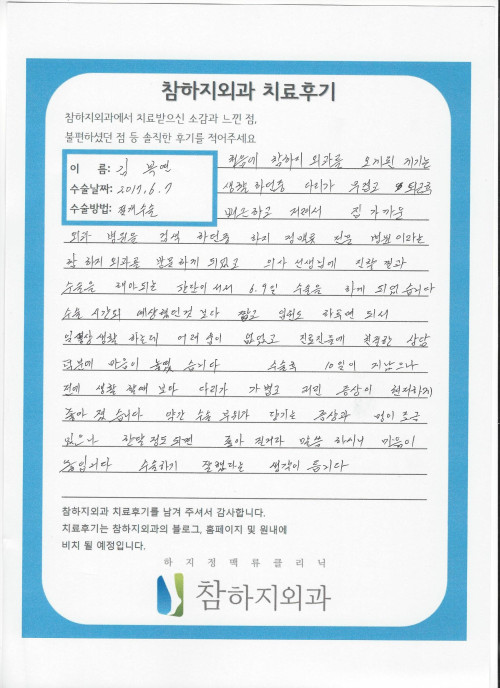 참하지외과 치료후기
참하지외과에서 치료받으신 소감과 느낀 점,
불편하셨던 점 등 솔직한 후기를 적어주세요
이 름: 김
수술날짜: 2017.6.9
수술방법:
처음에 참하지 외과를 오게된 계기는
생활 하던중 다리가 무겁고
피곤하고 저려서 집 가까운
외과 병원을 검색 하던중 하지 정맥류 전문 병원이라는
참 하지 외과를 방문하게 되었고 의사 선생님에 진학 결과
수술을 해야되는 판단이 서서 6.9일 수술을 하게 되었습니다
수술 시간되 예상했던것 보다 짧고 입원도 하루면 되서
일상 생활 하는데 어려움이 없었고 친절한 상담
덕분에 마음이 놓였습니다 수술후 10일이 지났으나
전에 생활 할때 보다 다리가 가볍고 저린 증상이 현저하게
좋아 졌습니다 약간 수술 부위가 당기는 증상과 멍이 조금
있으나 한달 정도 되면 좋아 진거라 말씀 하시니 마음이
놓입니다 수술하기 잘했다는 생각이 듭니다
참하지외과 치료후기를 남겨 주셔서 감사합니다.
치료후기는 참하지외과의 블로그, 홈페이지 및 원내에
비치 될 예정입니다.
하지정맥류클리닉
참하지외과